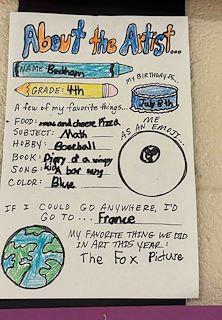 About the Artist...
NAME: Bodham
MY BIRTHDAY IS...
July 8th
GRADE: 4th
A few of my favorite things...
FOOD: mac and cheese Pizza
SUBJECT: Math
HOBBY: Baseball
BOOK: Diary of a wimpy kid
SONG: A bar song
COLOR: Blue
ME AS AN EMOJI...
IF I COULD GO ANYWHERE, I'D
GO TO... France
MY FAVORITE THING WE DID
IN ART THIS YEAR:
The Fox Picture